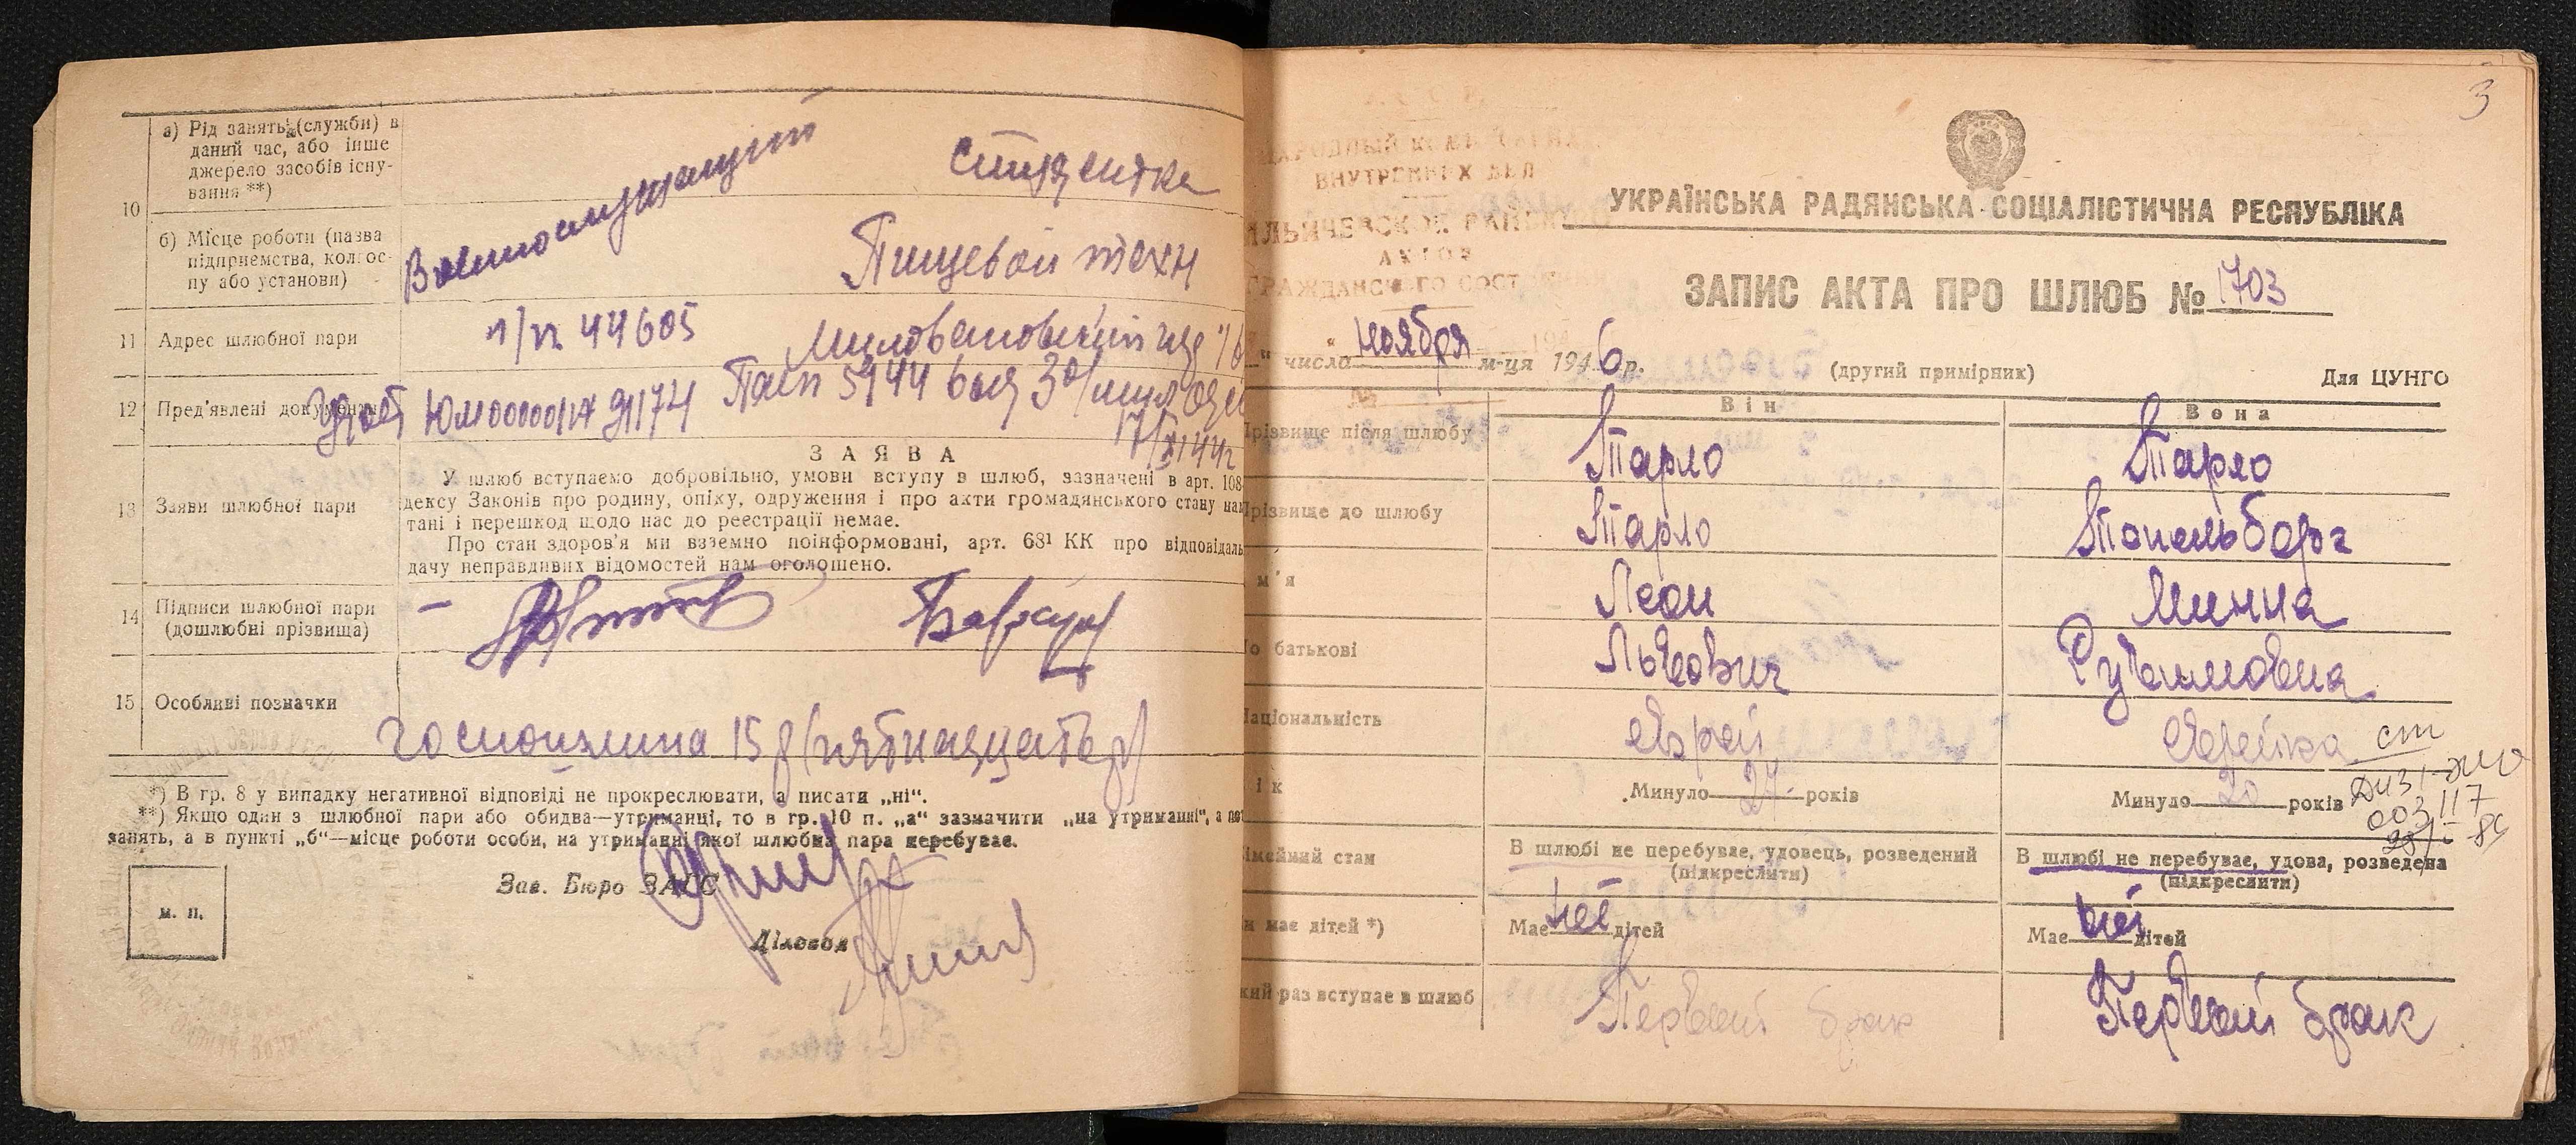 10
а) Рід занять (служби) в
даний час, або інше
джерело засобів існу-
вання **)
Военнослужащий
студентка
б) Місце роботи (назва
підприємства, колгос-
пу або установи)
Пищевой техн
11 Адрес шлюбної пари
п/п 44605
12 Пред'явлені документи
13 Заяви шлюбної пари
ЗАЯВА
У шлюб вступаємо добровільно, умови вступу в шлюб, зазначені в арт. 108
дексу Законів про родину, опіку, одруження і про акти громадянського стану нам
тані і перешкод щодо нас до реєстрації немає.
Про стан здоров'я ми взаємно поінформовані, арт. 68¹ КК про відповідаль
дачу неправдивих відомостей нам оголошено.
14 Підписи шлюбної пари
(дошлюбні прізвища)
15 Особливі позначки
госпошлина 15 р (пятнадцать р)
*) В гр. 8 у випадку негативної відповіді не прокреслювати, а писати „ні".
**) Якщо один з шлюбної пари або обидва—утриманці, то в гр. 10 п. „а" зазначити „на утриманні", а
занять, а в пункті „б"—місце роботи особи, на утриманні якої шлюбна пара перебуває.
Зав. Бюро ЗАГС
м. п.
Діловод
3
ВНУТРЕННИХ ДЕЛ
АКТОВ
УКРАЇНСЬКА РАДЯНСЬКА СОЦІАЛІСТИЧНА РЕСПУБЛІКА
ЗАПИС АКТА ПРО ШЛЮБ № 1703
числа ноября м-ця 1946 р.
(другий примірник)
Для ЦУНГО
Він
Вона
Прізвище після шлюбу
Тарло
Тарло
Прізвище до шлюбу
Тарло
м'я
Леон
Минна
По батькові
Львович
Рувимовна
Національність
еврей
еврейка
ік
Минуло 24 років
Минуло 20 років
003117
імейний стан
В шлюбі не перебуває, удовець, розведений
(підкреслити)
В шлюбі не перебуває, удова, розведена
(підкреслити)
и має дітей *)
Має нет дітей
Має нет дітей
кий раз вступає в шлюб
Первый брак
Первый брак